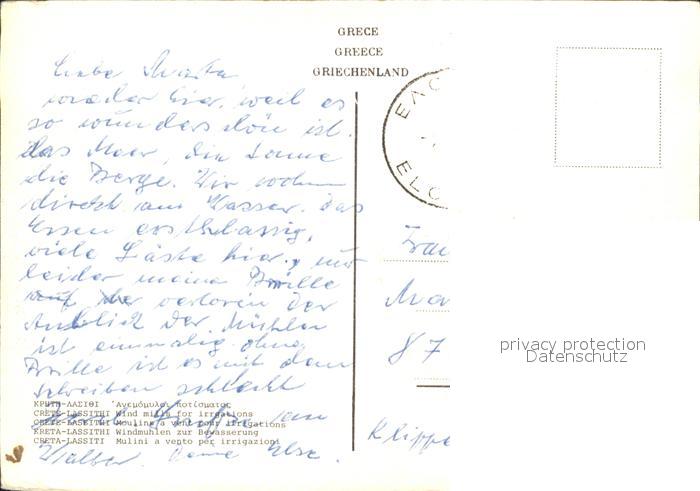 GRECE
GREECE
GRIECHENLAND
Liebe Martha
wieder hier, weil es
so wunderschön ist.
das Meer, die Sonne
die Berge. Wir wohnen
direkt am Wasser. das
Essen erstklassig,
viele Gäste hier, nur
leider meine Brille
verloren der
Anblick der Mühlen
ist einmalig ohne
Brille ist es mit dem
schreiben schlecht
an
Walter. Deine Else.
ΚΡΗΤΗ-ΛΑΣΙΘΙ Ἀνεμόμυλοι ποτίσματος
CRETE-LASSITHI Wind mills for irrgations
CRETE-LASSITHI Moulins a vent pour irrigations
KRETA-LASSITHI Windmuhlen zur Bewasserung
CRETA-LASSITI Mulini a vento per irrigazioni
ΕΛΟ
ELO
Frau
Ma
87
Klippe
privacy protection
Datenschutz